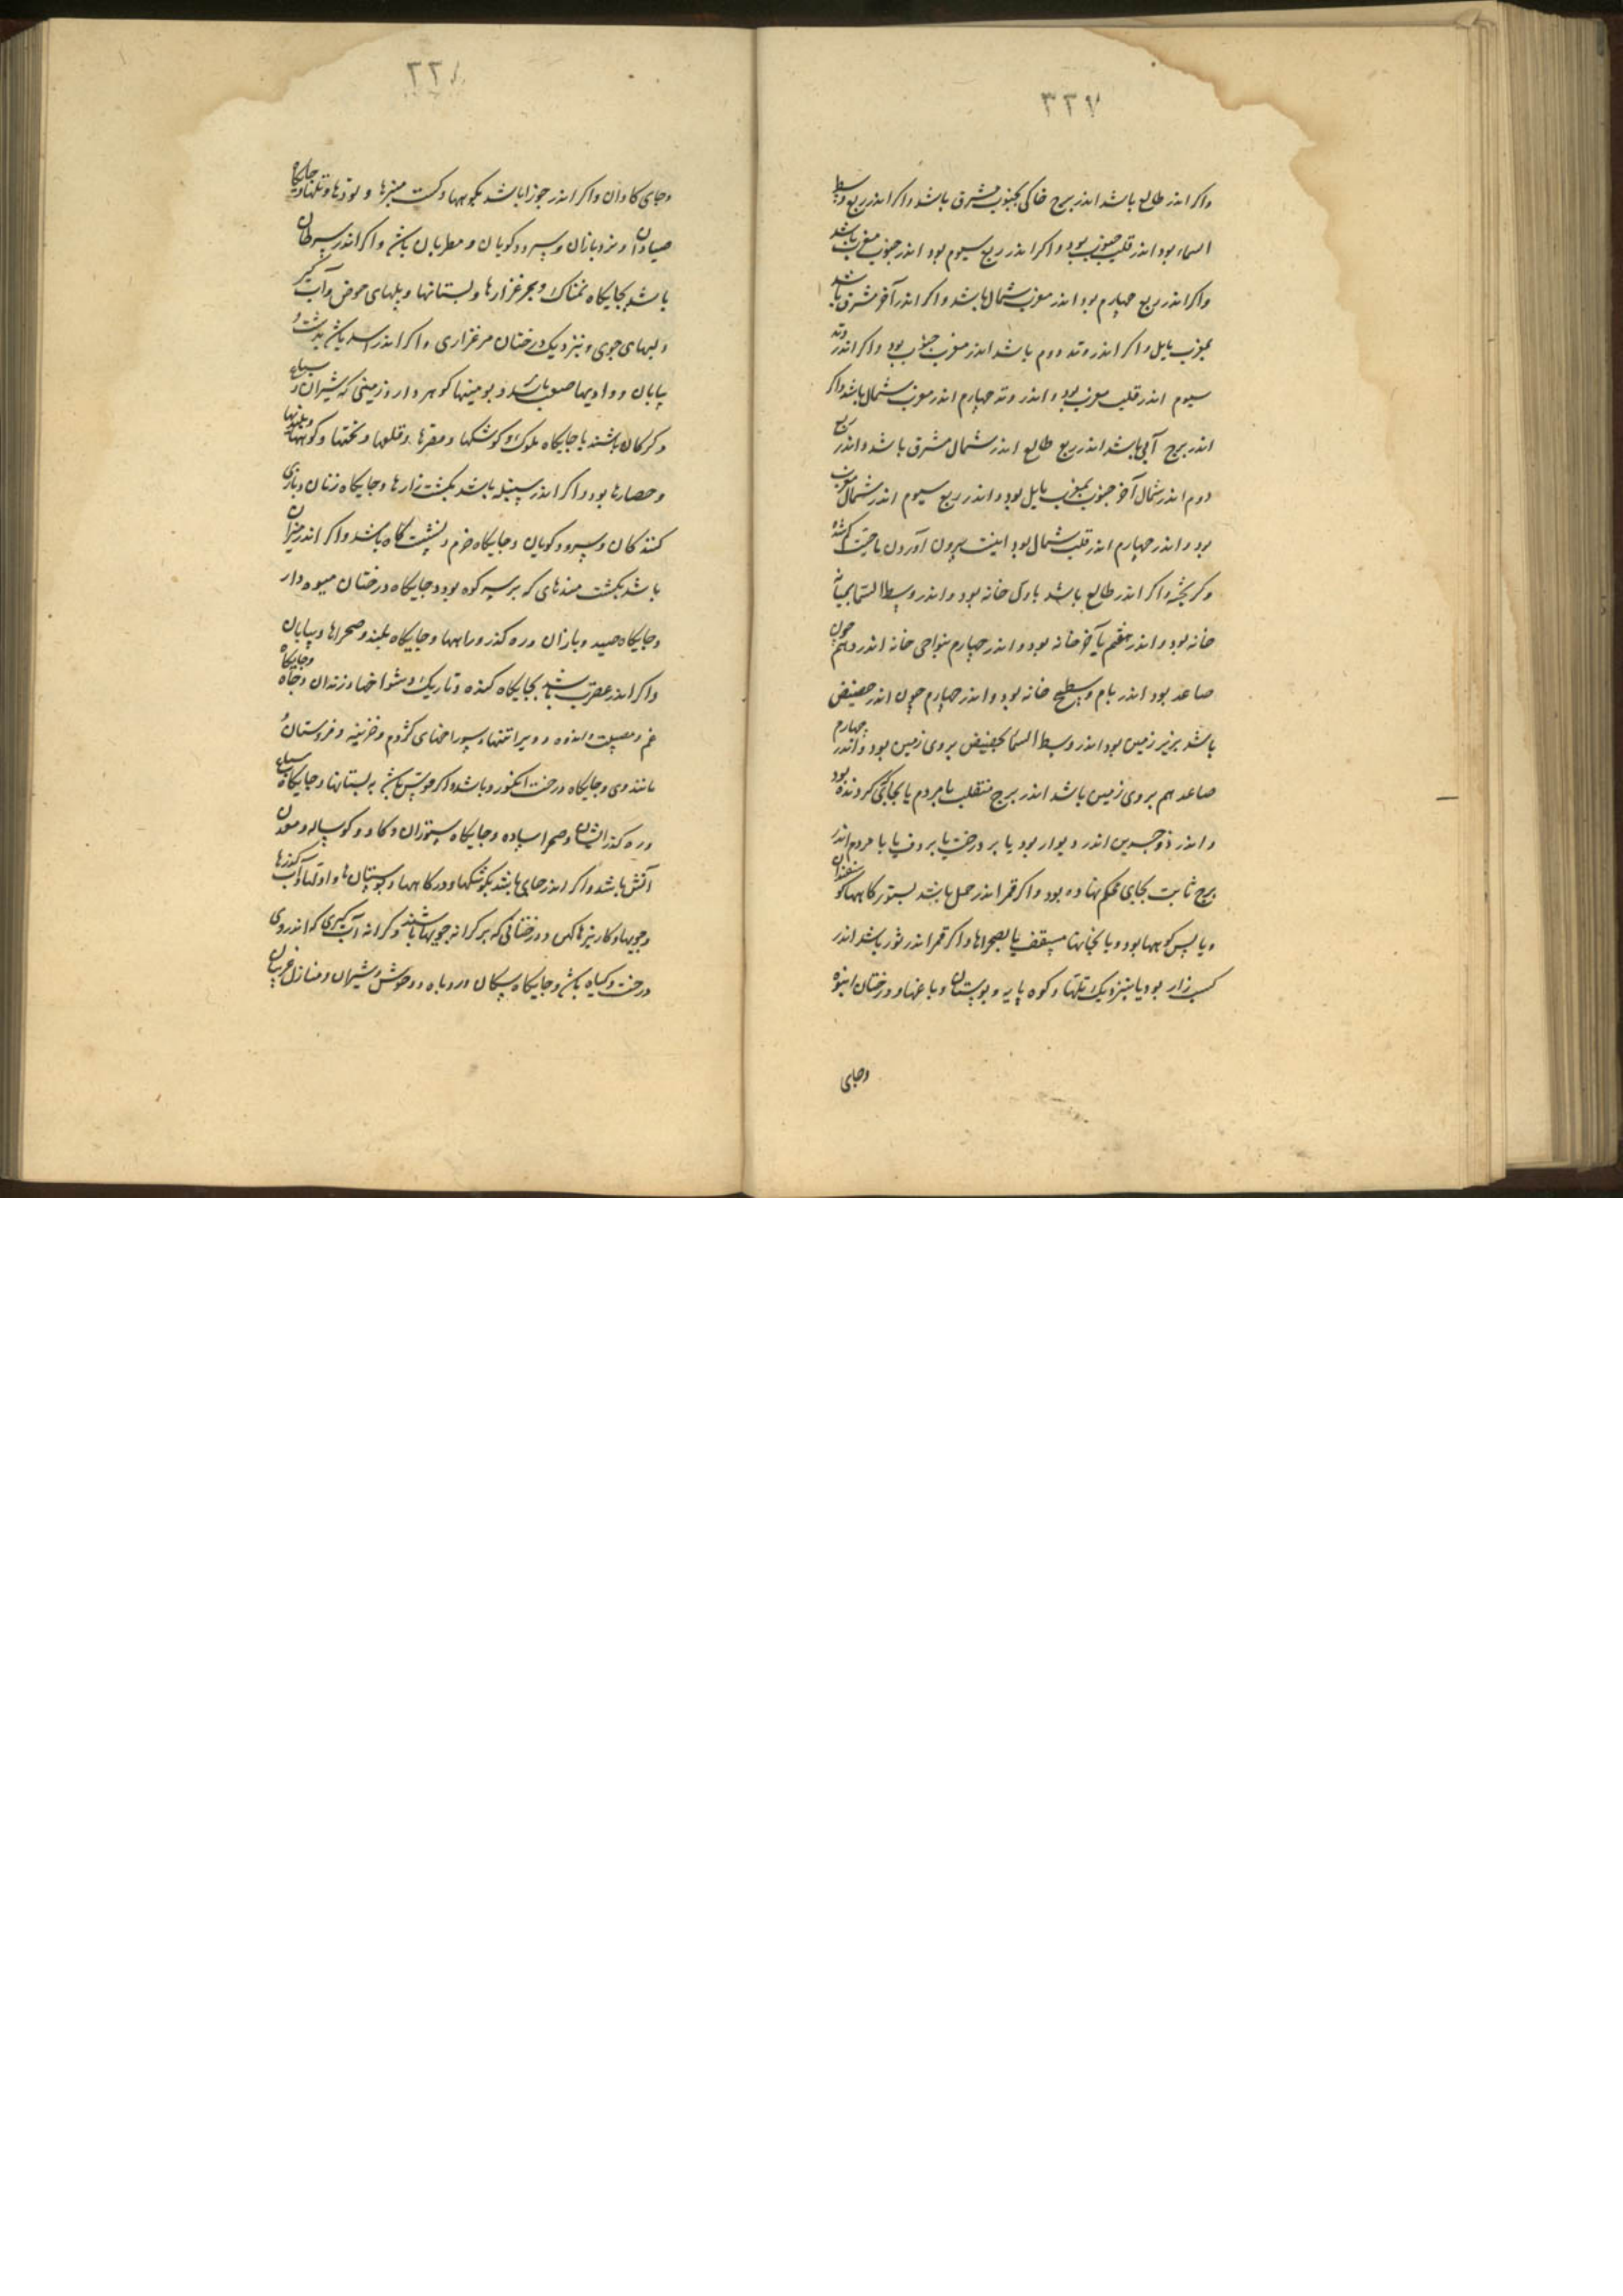 ٣٢٧
واکر اندر طالع باشد اندر برج خاکی بجنوب مشرق باشد واکر اندر ربع وسط
السماء بود اندر قلب جنوب بود واکر اندر ربع سیوم بود اندر جنوب مغرب باشد
واکر اندر ربع چهارم بود اندر مغرب شمال باشد واکر اندر آخر مشرق باشد
بمغرب مایل واکر اندر وتد دوم باشد اندر مغرب جنوب بود واکر اندر وتد
سیوم اندر قلب مغرب بود واندر وتد چهارم اندر مغرب شمال باشد واکر
اندر برج آبی باشد اندر ربع طالع اندر شمال مشرق باشد واندر ربع
دوم اندر شمال آخر جنوب بمغرب مایل بود واندر ربع سیوم اندر شمال مغرب
بود واندر چهارم اندر قلب شمال بود اینست بیرون آوردن ناحیت کم شده
وکریخته واکر اندر طالع باشد باول خانه بود واندر وسط السما بمیانه
خانه بود واندر هفتم بآخر خانه بود واندر چهارم بنواحی خانه اندر دهم چون
صاعد بود اندر بام وسطح خانه بود واندر چهارم چون اندر حضیض
باشد بزیر زمین بود اندر وسط السما بحضیض بروی زمین بود واندر چهارم
صاعد هم بروی زمین باشد اندر برج منقلب بامردم یا بجائی کردنده بود
واندر ذوجسدین اندر دیوار بود یا بر درخت یا بر دف یا با مردم اندر
برج ثابت بجای محکم نهاده بود واکر قمر اندر حمل باشد بستورکاهها کوسفندان
ویا پس کوهها بود ویا بخانها مسقف یا بصحراها واکر قمر اندر ثور باشد اندر
کشت زار بود یا بنزدیک تلها وکوه پایه وبوستان وباغها ودرختان انبوه
وجای
٣٢٨
وجای کاوان واکر اندر جوزا باشد بکوهها وکشت سبزها و تودها وتلها وجایکاه
صیادان ونرد بازان وسرود کویان ومطربان باشد واکر اندر سرطان
باشد بجایکاه نمناک وبمرغزارها وبستانها وپلهای حوض وآب کیر
ولبهای جوی وبنزدیک درختان مرغزاری واکر اندر اسد باشد بدشت و
بیابان و وادیها صعب باشد وبومینها کوهر دار وزمینی که شیران وسباع
وکرکان باشند یا جایکاه ملوک وکوشکها ومقرها وقلعها وتختها وکوهها وبلندیها
وحصارها بود واکر اندر سنبله باشد بکشت زارها وجایکاه زنان وبازی
کنندکان وسرود کویان وجایکاه خرم ونشست کاه باشد واکر اندر میزان
باشد بکشت مندهای که بر سر کوه بود وجایکاه درختان میوه دار
وجایکاه صید وبازان وره کذر وراهها وجایکاه بلند وصحراها وبیابان
واکر اندر عقرب باشد بجایکاه کنده وتاریک وسوراخها وزندان وچاه وجایکاه
غم ومصیبت واندوه وویرانیها وسوراخهای کژدم وخزینه و
مانند وی وجایکاه درخت انکور وباشد واکر در قوس باشد به بستانها وجایکاه سباع
وره کذر ایشان وصحرا ساده وجایکاه ستوران وکاو وکوساله ومعدن
آتش باشد واکر اندر جدی باشد بکوشکها ودرکاهها وبوستان ها و وآب کذرها
وجویها وکاریزها کهن ودرختانی که بر کرانه جویها باشند وکرانه آب کیری که اندر وی
درخت وکیاه باشد وجایکاه سکان وروباه ووحوش وشیران ومنازل غریبان